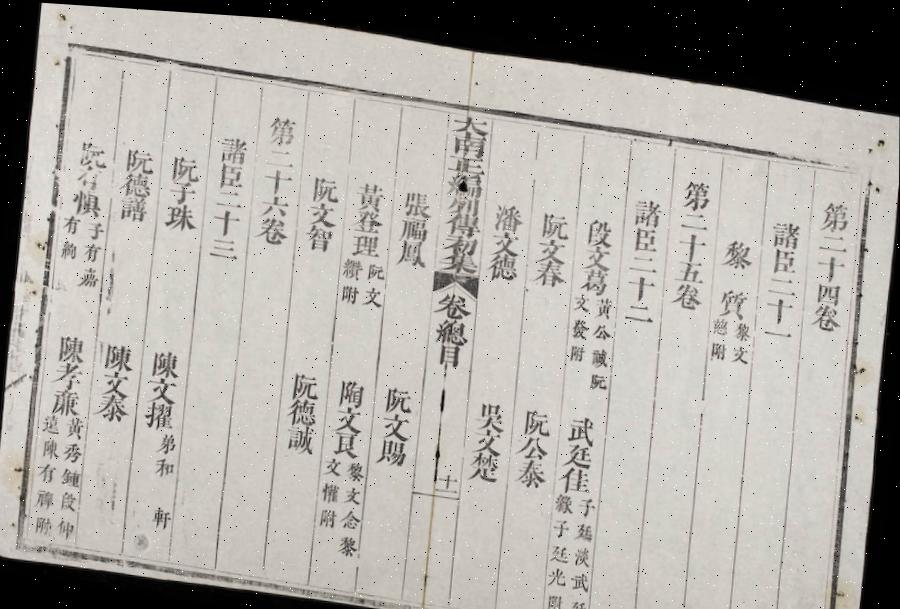 第二十四卷
諸臣二十一
黎質 黎文慈附
第二十五卷
諸臣二十二
段文葛 黃公誠阮文發附 武廷佳 子廷淡武廷 歡子廷光附
阮文春 阮公泰
潘文德 吳文楚
大南正編列傳初集 卷總目 十一
張福鳳 阮文賜
黃登理 阮文纘附 陶文良 黎文念黎文懽附
阮文智 阮德誠
第二十六卷
諸臣二十三
阮子珠 陳文擢 弟和 軒
阮德譜 陳文泰
阮有慎 子有嘉有絢 陳孝廉 黃秀鍾段伸遠陳有禆附